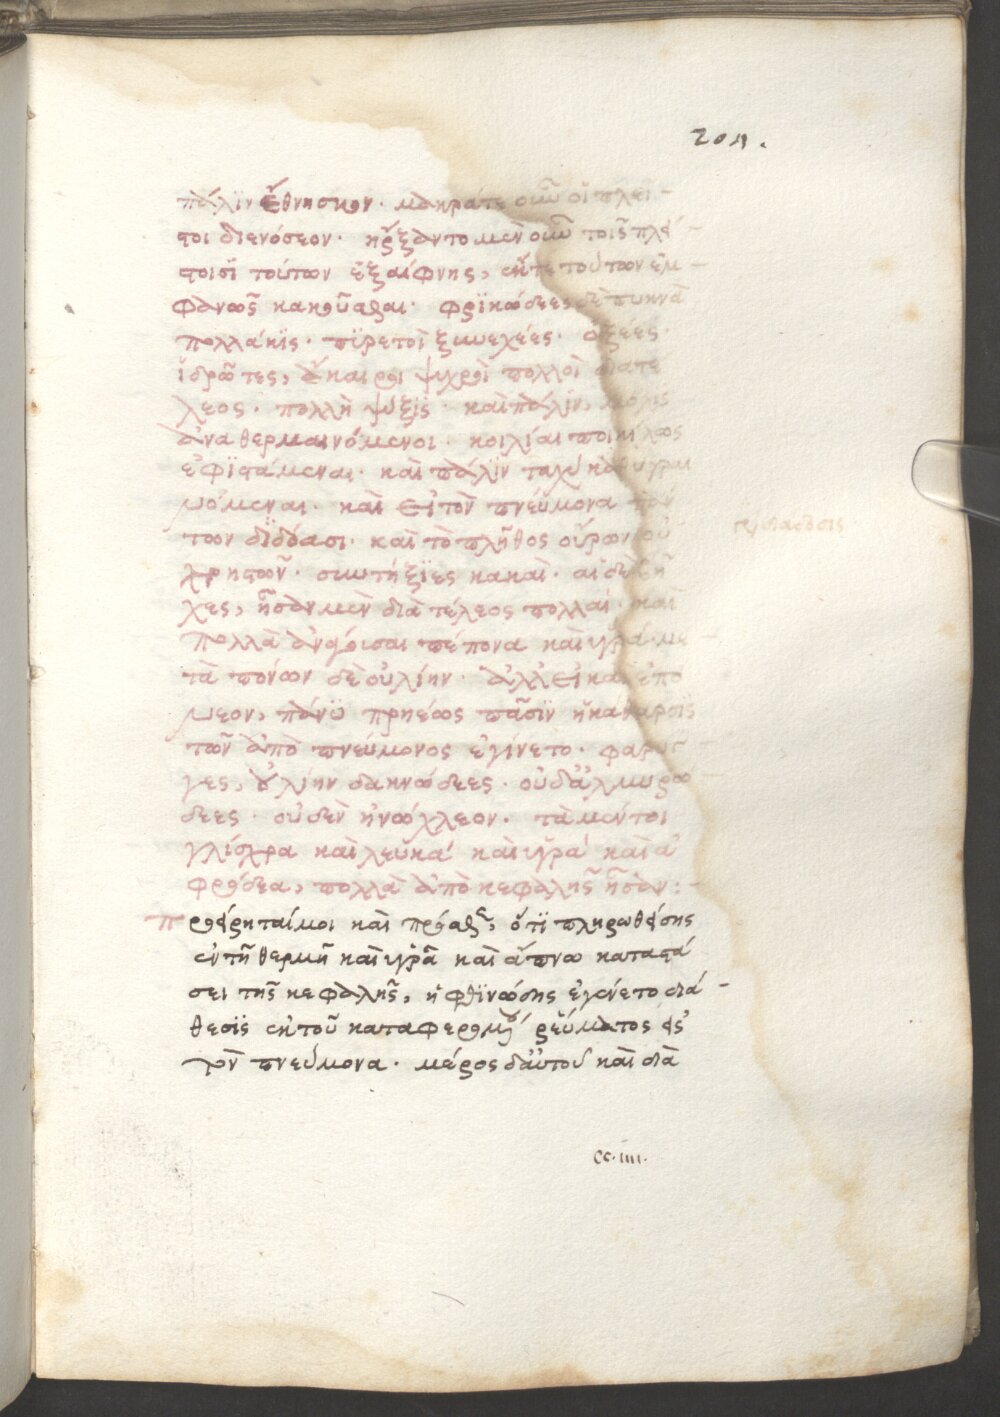 204.
πάλιν ἔθνησκον. μακρότε οὖν οἱ πλεῖ-
στοι διενόσεον. ἤρξαντο μὲν οὖν τοῖς πλεί-
στοισϊ τούτων ἐξαίφνης, ἔκ τε τούτων ἐμ-
φανῶς κακοῦσθαι. φρϊκώδεες δὲ πυκνὰ
πολλάκϊς. πϊρετοὶ ξυνεχέες. ὀξέες.
ἱδρῶτες, ἄκαιροι ψυχροὶ πολλοὶ διατε
λεος. πολλὴ ψύξϊς. καὶ πάλϊν, μόλις
ἀναθερμαινόμενοι. κοιλίαι ποικίλως
ἐφϊστάμεναι. καὶ πάλϊν ταχὺ καθυγραι
νόμεναι. καὶ τὸν πνεύμονα πάν
των δϊδόασι. καὶ τὸ πλῆθος οὔρων οὐ
χρηστῶν. συντήξϊες κακαὶ. αἱ δὲ βῆ
χες, ἦσαν μὲν διὰ τέλεος πολλαί. καὶ
πολλὰ ἀνάγουσαι πέπονα καὶ ὑγρά. με
τὰ πόνων δὲ οὐ λίην. ἀλλ' εἰ καὶ ἐπό
νεον, πάνϋ πρηέως πᾶσϊν ἡ κάθαρσϊς
τῶν ἀπὸ πνεύμονος ἐγίνετο. φάρυγ-
γες, οὐ λίην δακνώδεες. οὐδ' ἁλμυρώ-
δεες. οὐδὲν ἠνώχλεον. τὰ μέντοι
γλίσχρα καὶ λευκά καὶ ὑγρά καὶ ἀ
φρώδεα, πολλὰ ἀπὸ κεφαλῆς ἦσαν:-
προείρηταί μοι καὶ πρόσθεν, ὅτϊ πληρωθείσης
ἐν τῇ θερμῇ καὶ ὑγρᾷ καὶ ἄπνω καταστά
σει τῆς κεφαλῆς, ἡ φθϊνώδης ἐγένετο διά-
θεσϊς ἐκ τοῦ καταφερομένου ῥεύματος εἰς
τὸν πνεύμονα. μέρος δ' αὐτοῦ καὶ διὰ
cc.iiii.